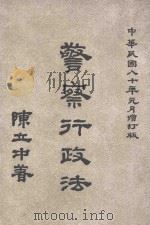 中華民國八十年元月增訂版
警察行政法
陳立中著